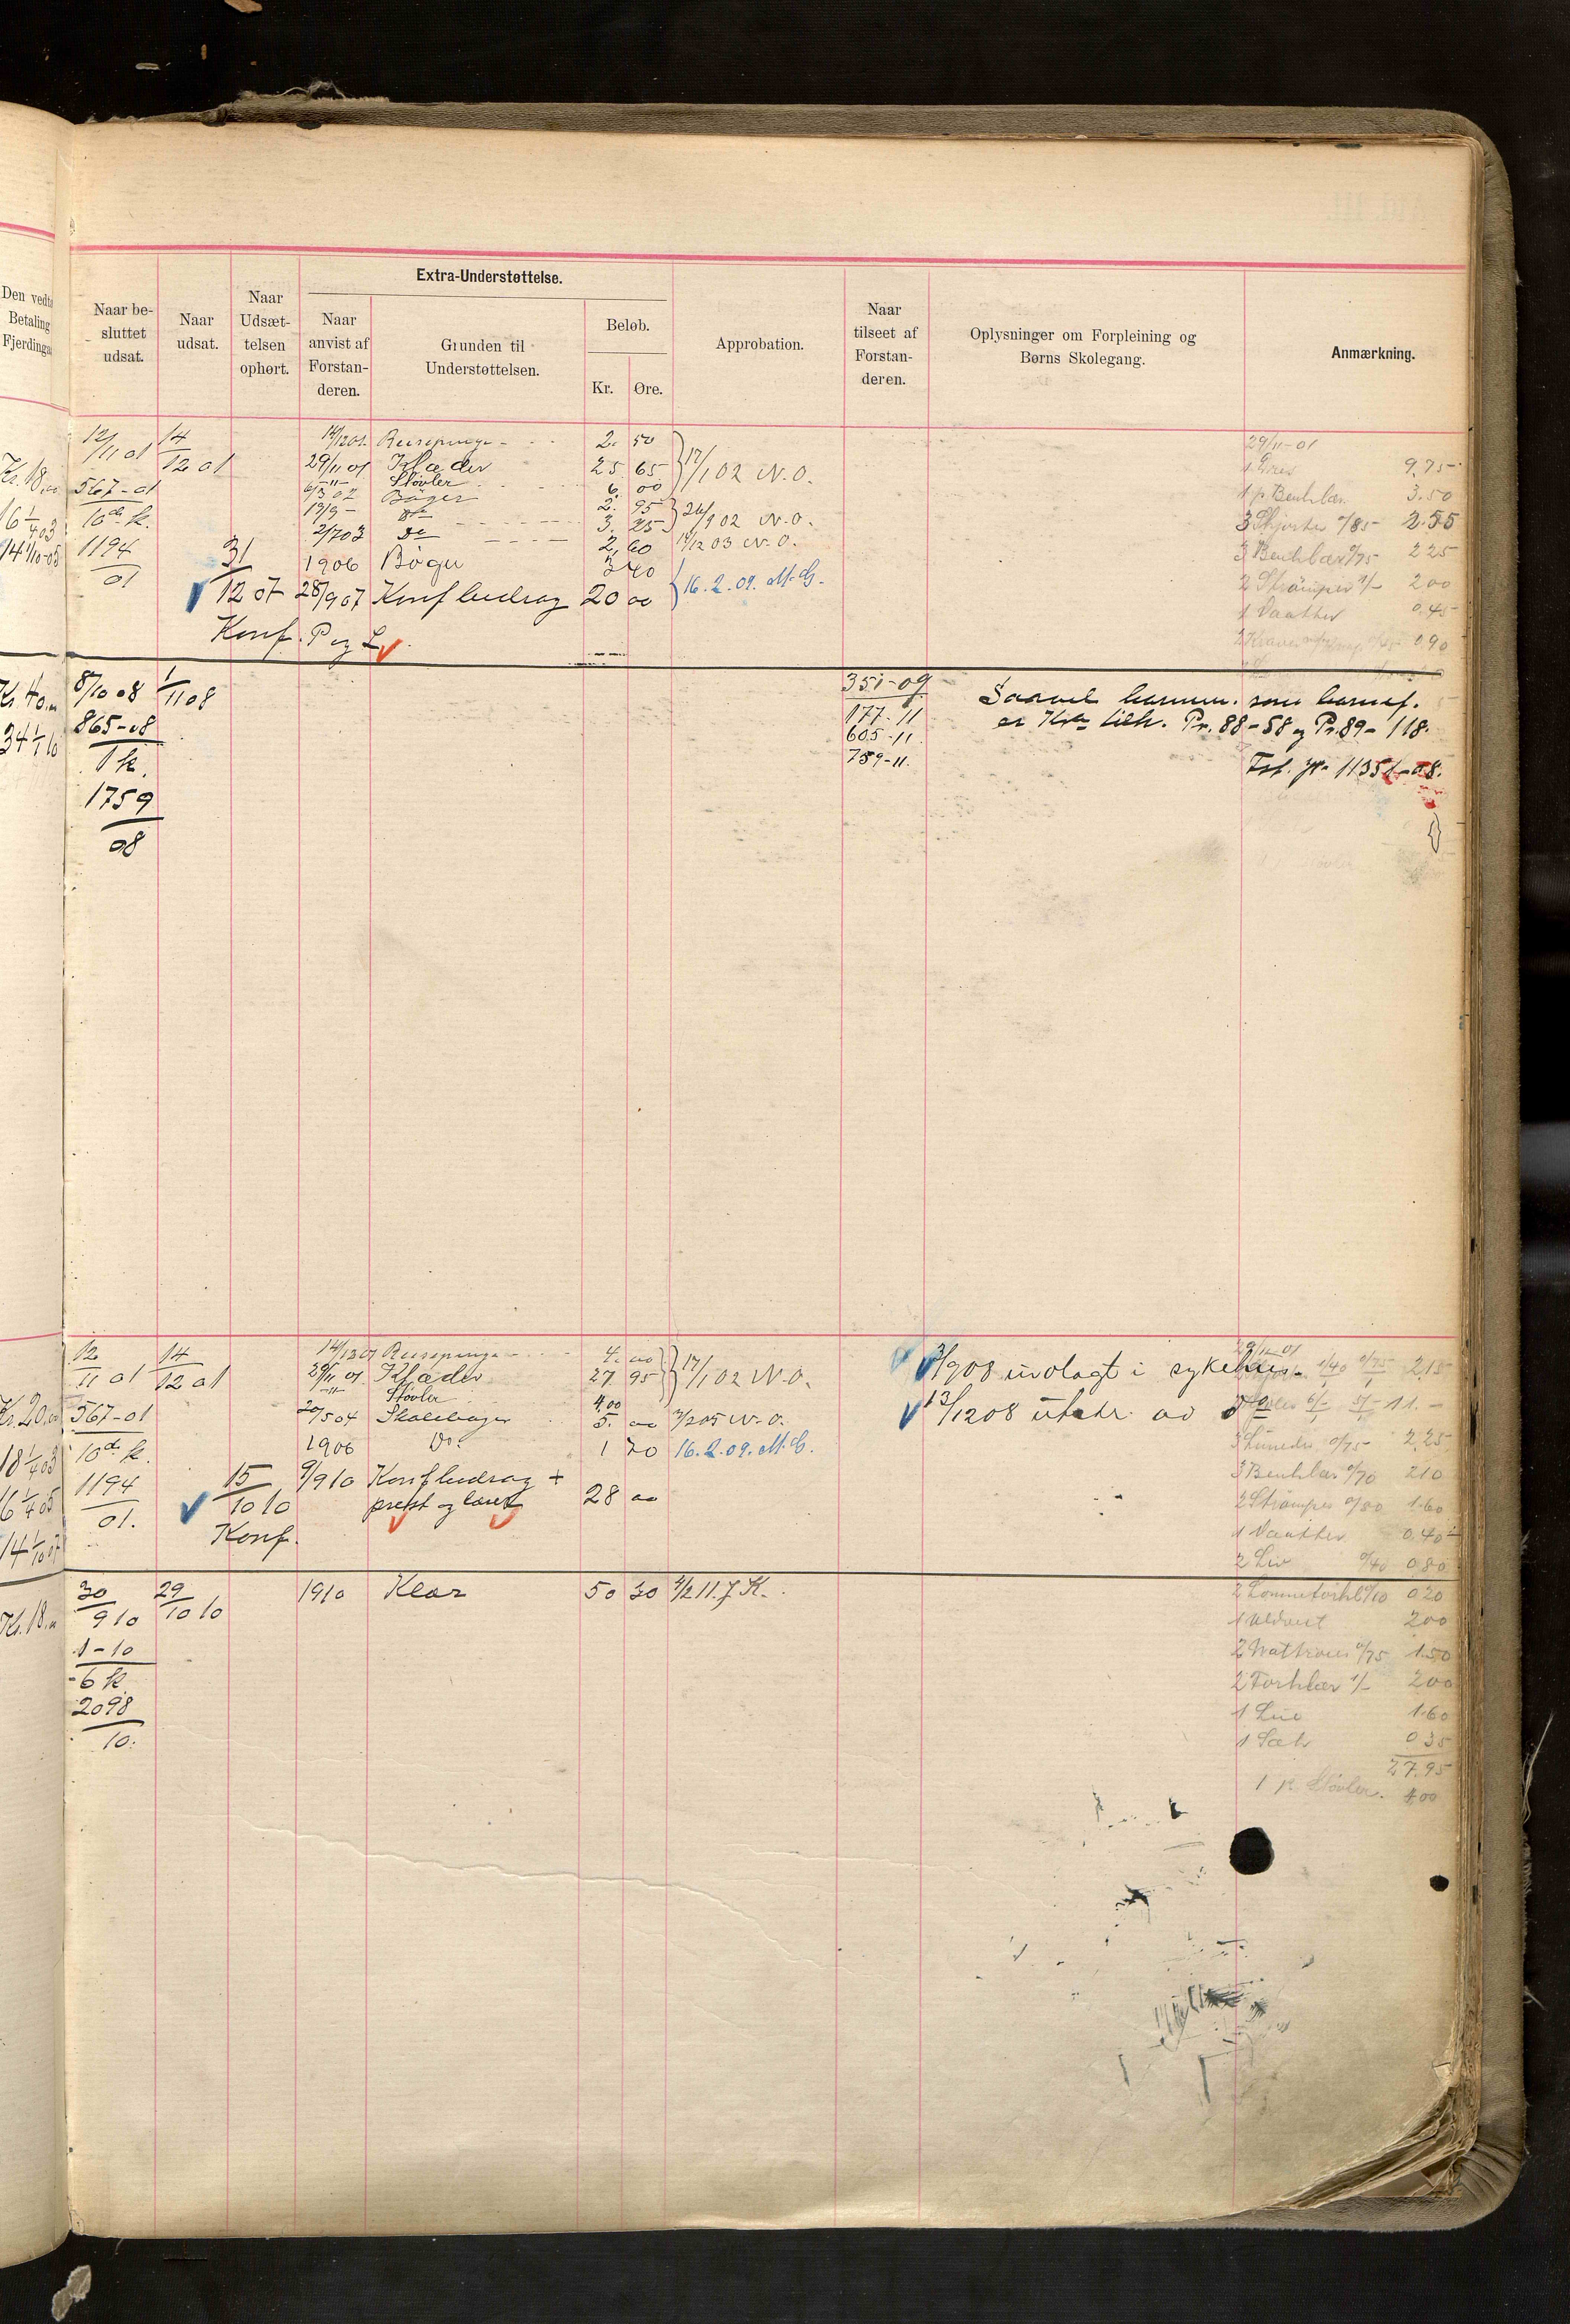 Den vedt
Betaling
Fjerdinga
Naar be-
sluttet
udsat.
Naar
udsat.
Naar
Udsæt-
telsen
ophørt.
Extra-Understøttelse.
Naar
anvist af
Forstan-
deren.
Grunden til
Understøttelsen.
Beløb.
Kr.
Øre.
Approbation.
Naar
tilseet af
Forstan-
deren.
Oplysninger om Forpleining og
Børns Skolegang.
Anmærkning.
12/11 01 14/12 01 14/1201 Reisepenge 2. 50
29/11 01 Klæder 25 65 17/1 02 N.O.
Kr. 18.00 567-01 -"- Støvler 6. 00
6/3 02 Bøger 2. 95
16 1/4 03 10de k. 19/9 - do 3. 25 24/9 02 N.O.
14 1/10-05 1194 2/703 do 2,60 14/12 03 N.O.
01 31/12 07 1906 Bøger 3 40
28/907 Konfbidrag 20 00 16.2.09. M.G.
Konf. P og L
29/11-01
9.75
1 p. Benklær 3.50
3 Skjorter a/85 2.55
3 Benklær a/75 2 25
2 Strømper 1/- 2 00
1 Vaatter 0.45
0.90
Kr. 40.00 8/10 08 1/11 08 351-09
34 1/1 10 865-08 177-11
1 k. 605-11
1759 759-11.
08
er Pr. 88-58 og Pr. 89-118.
11351-08.
12/11 01 14/12 01 14/1201 Reisepenge 4. 00
29/11 01 Klæder 27 95 17/1 02 N.O.
Kr. 20.00 567-01 -"- Støvler 4 00
20/504 Skolebøger 5. 00 7/205 N.O.
18 1/4 03 10de k. 1906 Do. 1 70 16.2.09. M.G.
6 1/4 05 1194 15/10 10 9/910 Konfbidrag +
01. prest og lærer 28 00
14 1/10 07 Konf.
3/908 indlagt i sykehus.
13/1208 utskr. av do
29/11-01
1/40 0/75 2,15
6/- 5/- 11.-
3 Linneder 0/75 2,25
3 Benklær 0/70 2 10
2 Strømper 0/80 1.60
1 Vaatter 0.40
2 Liv 0/40 0.80
2 Lommetørkl 0/10 0 20
1 Uldvest 2 00
2 0/75 1.50
2 Forklær 1/- 2 00
1 Lue 1.60
1 Sæk 0 35
27.95
1 p. Støvler. 4 00
Kr. 18.00 30/9 10 29/10 10 1910 Klær 50 30 4/2 11. J.K.
1-10
6 k.
2098
10.